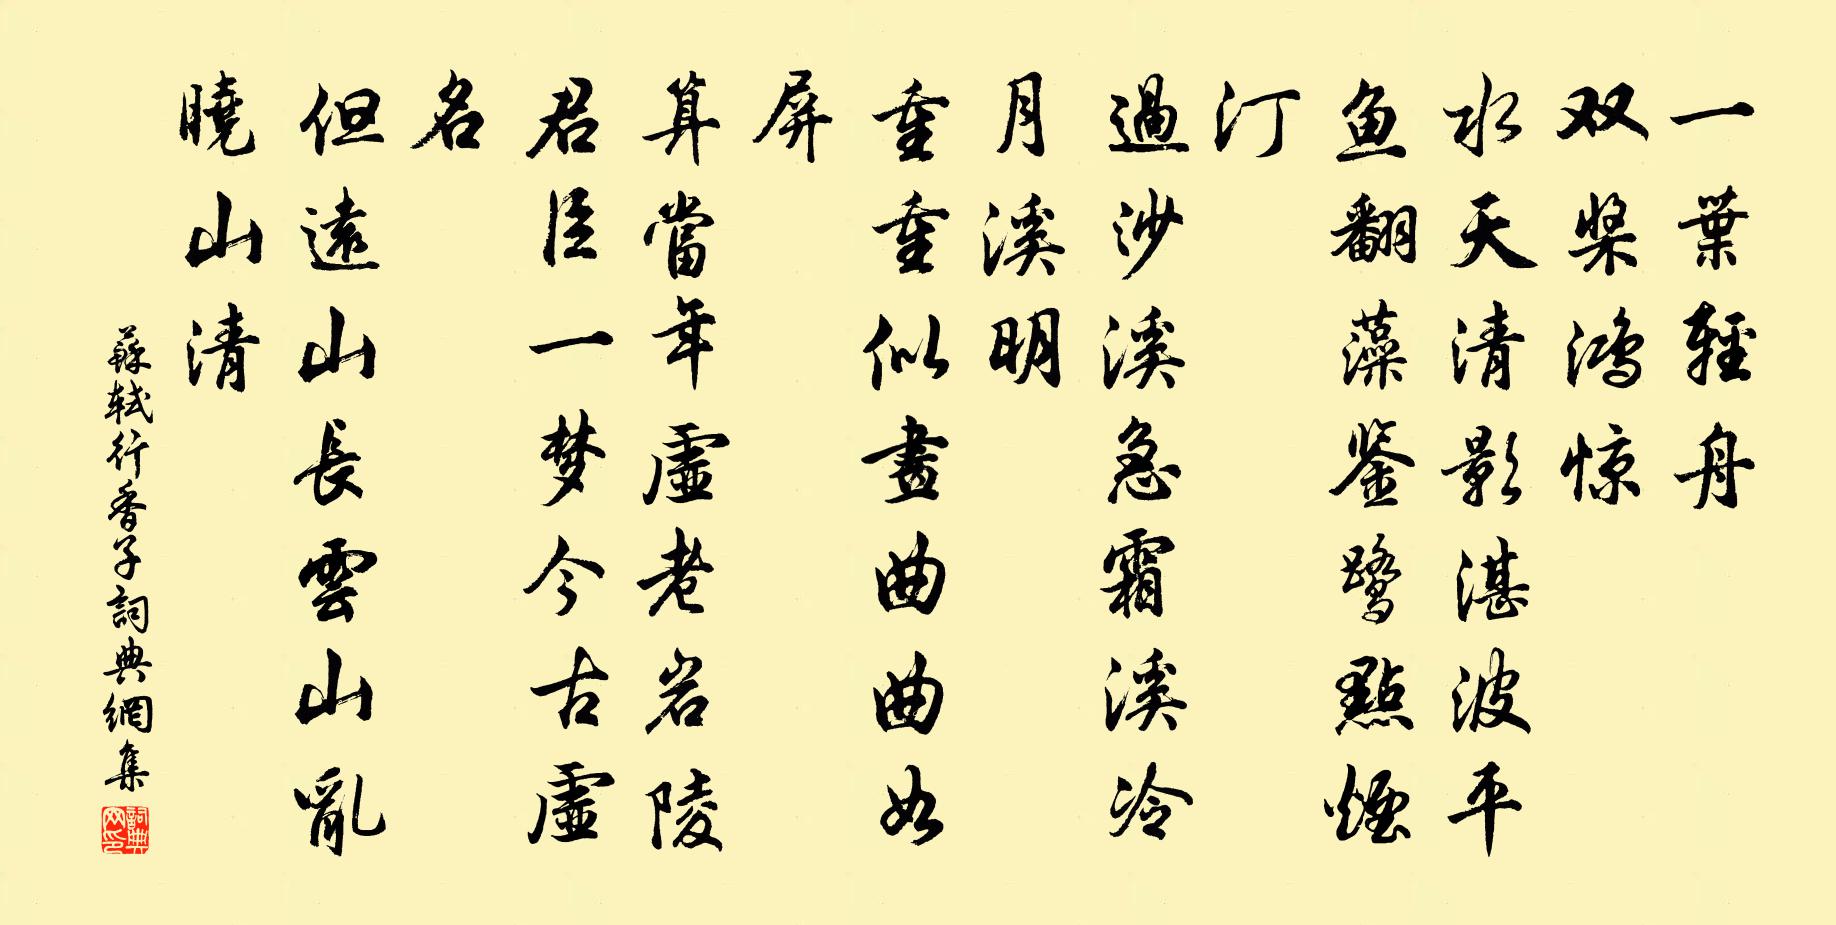 一葉輕舟
双桨鸿惊
水天清影湛波平
鱼翻藻鉴鹭點煙
汀
過沙溪急霜溪冷
月溪明
重重似畫曲曲如
屏
算當年虛老岩陵
君臣一梦今古虛
名
但遠山長雲山亂
曉山清
蘇軾行香子詞典網集
詞典网印